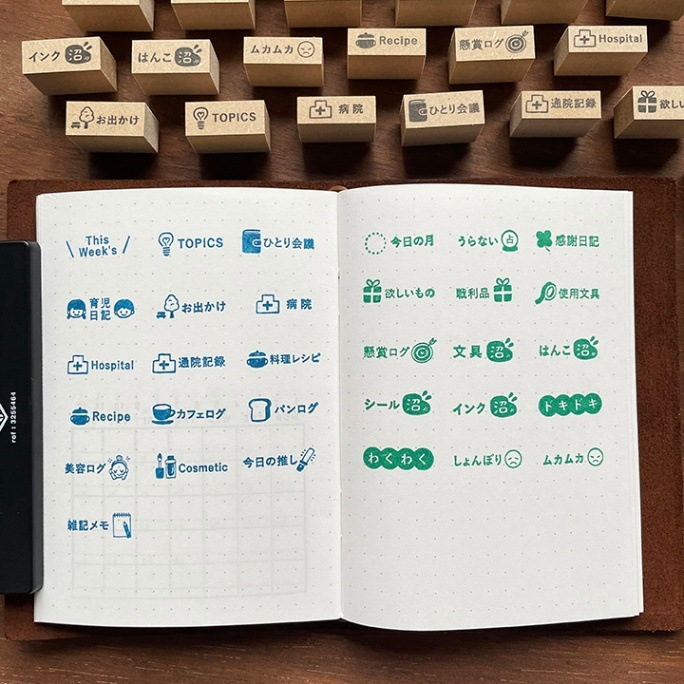 インク沼
はんこ沼
ムカムカ
Recipe
懸賞ログ
Hospital
お出かけ
TOPICS
病院
ひとり会議
通院記録
欲しい
This
Week's
TOPICS
ひとり会議
育児
日記
お出かけ
病院
Hospital
通院記録
料理レシピ
Recipe
カフェログ
パンログ
美容ログ
Cosmetic
今日の推し
雑記メモ
今日の月
うらない 占
感謝日記
欲しいもの
戦利品
使用文具
懸賞ログ
文具沼
はんこ沼
シール沼
インク沼
ドキドキ
わくわく
しょんぼり
ムカムカ
ref : 3255464